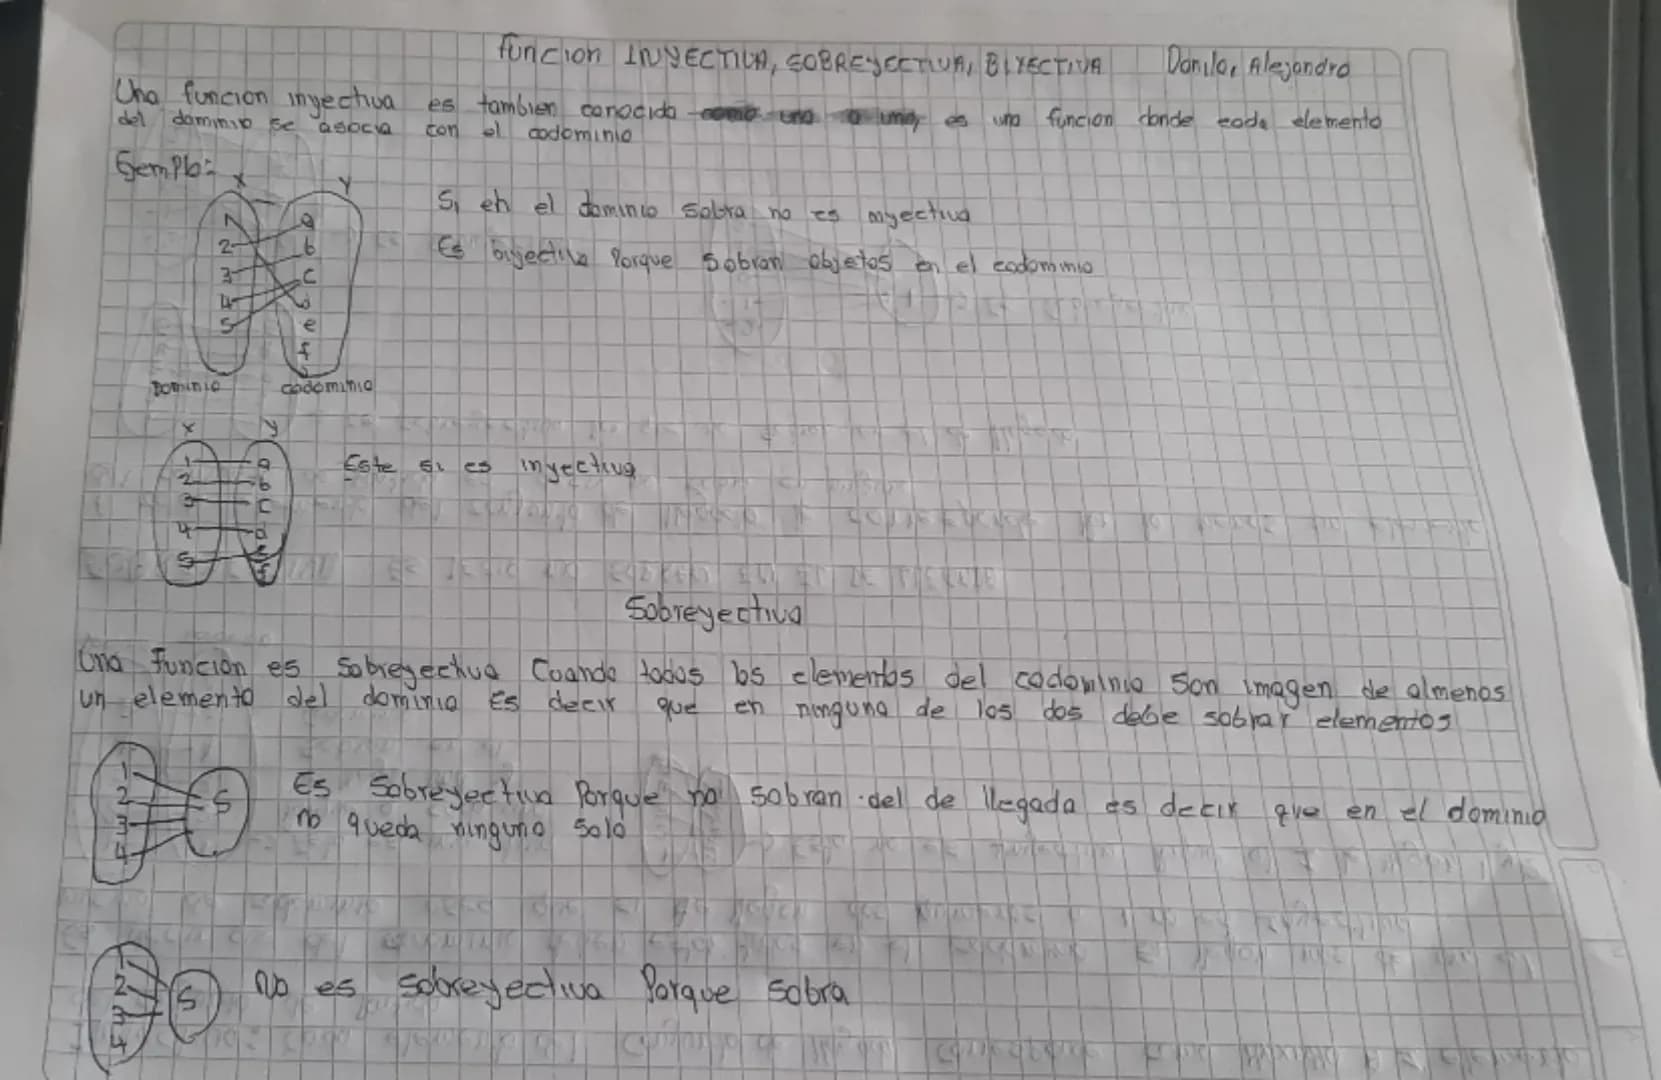 función INYECTIVA, SOBREYECTIVA, BIYECTIVA Danilo, Alejandro
Una funcion inyectiva es tambien conocida como una a uno, es una funcion donde cada elemento
del dominio se asocia con el codominio
Ejemplo:
X Y
1 a
2 b
3 c
4 d
5 e
f
Dominio codominio
Si en el dominio sobra no es inyectiva
Es biyectiva Porque sobran objetos en el codominio
x y
1 a
2 b
3 c
4 d
5 e
f
Este si es inyectiva
Sobreyectiva
Una Función es Sobreyectiva Cuando todos los elementos del codominio Son imagen de almenos
un elemento del dominio Es decir que en ninguno de los dos debe sobrar elementos
1
2
3
4
5
Es Sobreyectiva Porque no sobran del de llegada es decir que en el dominio
no queda ninguno solo
1
2
3
4
5
No es sobreyectiva Porque sobra